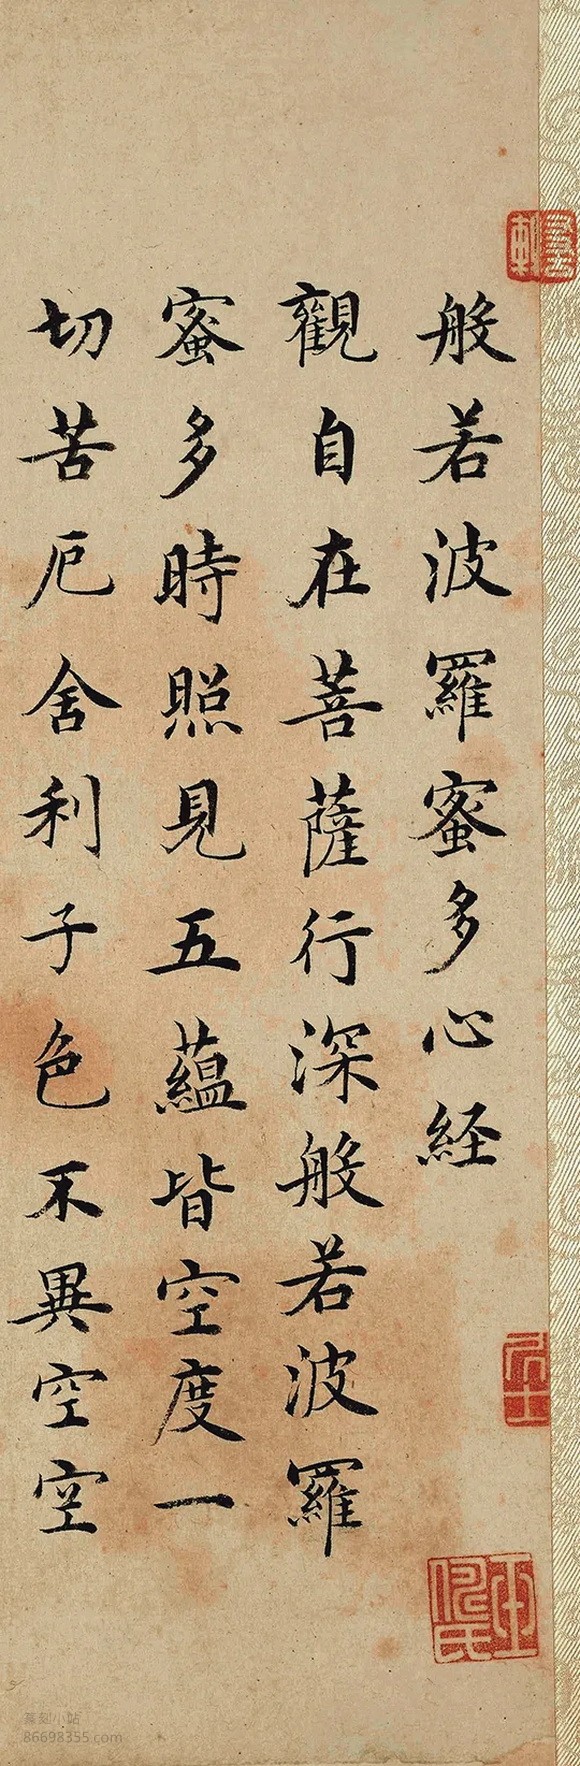 般若波羅蜜多心経
觀自在菩薩行深般若波羅
蜜多時照見五蘊皆空度一
切苦厄舍利子色不異空空
篆刻小站
86698355.com